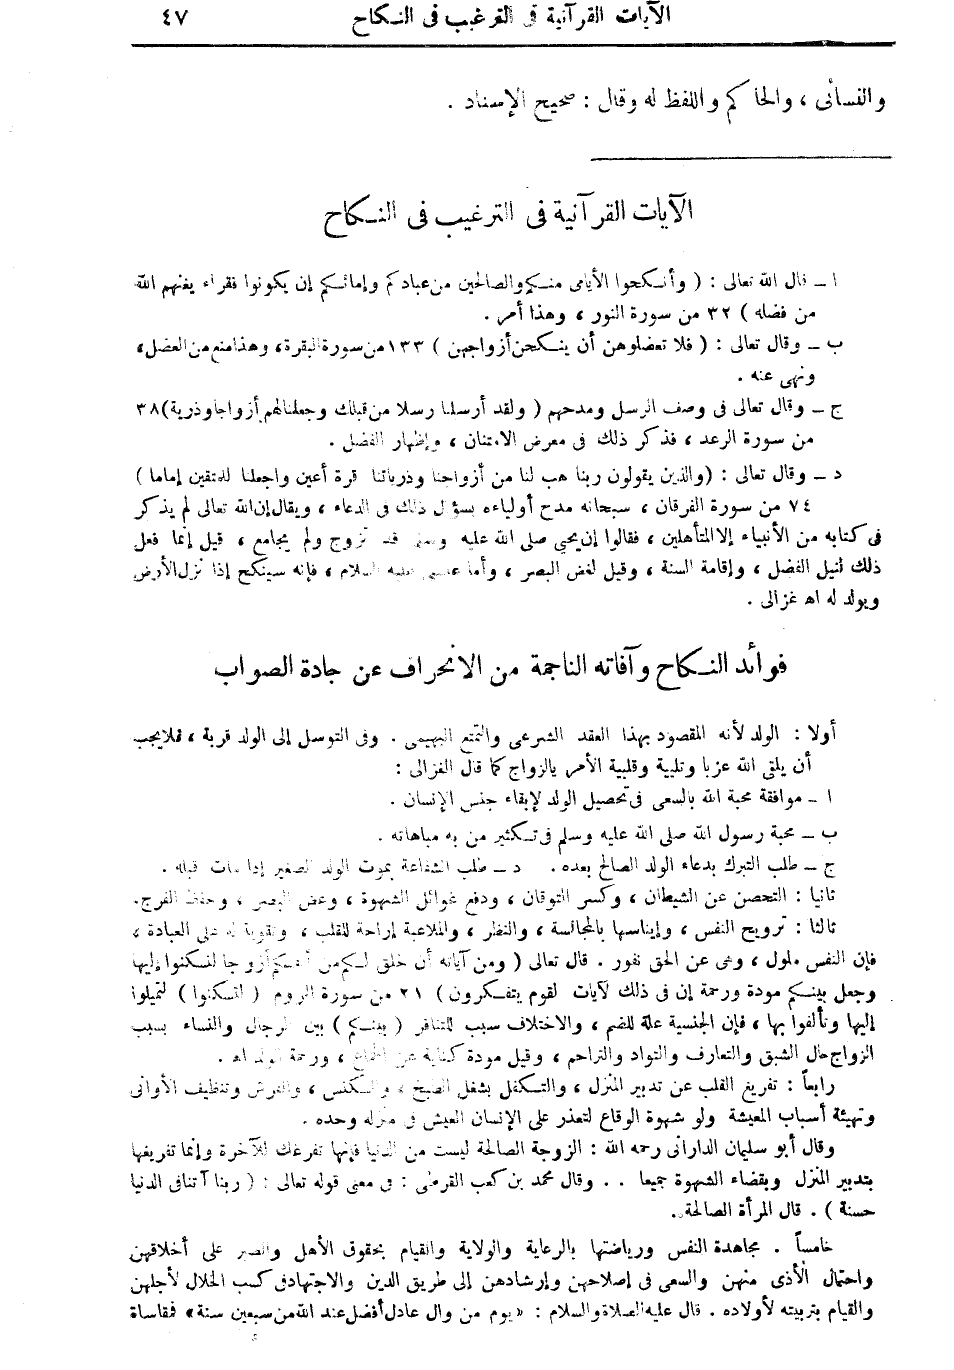 الآيات القرآنية فى الترغيب فى النكاح ٤٧
والنسائى ، والحاكم واللفظ له وقال : صحيح الإسناد .
الآيات القرآنية فى الترغيب فى النكاح
ا ــ قال الله تعالى : ( وأنكحوا الأيامى منكم والصالحين من عبادكم وإمائكم إن يكونوا فقراء يغنهم الله
من فضله ) ٣٢ من سورة النور ، وهذا أمر .
ب ــ وقال تعالى : ( فلا تعضلوهن أن ينكحن أزواجهن ) ١٣٣ من سورة البقرة، وهذا منع من العضل،
ونهى عنه .
ج ــ وقال تعالى فى وصف الرسل ومدحهم ( ولقد أرسلنا رسلا من قبلك وجعلنا لهم أزواجا وذرية) ٣٨
من سورة الرعد ، فذكر ذلك فى معرض الامتنان ، وإظهار الفضل .
د ــ وقال تعالى : (والذين يقولون ربنا هب لنا من أزواجنا وذرياتنا قرة أعين واجعلنا للمتقين إماما )
٧٤ من سورة الفرقان ، سبحانه مدح أولياءه بسؤال ذلك فى الدعاء ، ويقال إن الله تعالى لم يذكر
فى كتابه من الأنبياء إلا المتأهلين ، فقالوا إن يحيى صلى الله عليه وسلم قد تزوج ولم يجامع ، قيل إنما فعل
ذلك لنيل الفضل ، وإقامة السنة ، وقيل لغض البصر ، وأما عيسى عليه السلام ، فإنه سينكح إذا نزل الأرض
ويولد له اهـ غزالى .
فوائد النكاح وآفاته الناجمة من الانحراف عن جادة الصواب
أولا : الولد لأنه المقصود بهذا العقد الشرعى والتمتع البهيمى . وفى التوسل إلى الولد قربة ، فلا يجب
أن يلقى الله عزبا وتلبية وقلبية الأمر بالزواج كما قال الغزالى :
ا ــ موافقة محبة الله بالسعى فى تحصيل الولد لإبقاء جنس الإنسان .
ب ــ محبة رسول الله صلى الله عليه وسلم فى تكثير من به مباهاته .
ج ــ طلب التبرك بدعاء الولد الصالح بعده . د ــ طلب الشفاعة بموت الولد الصغير إذا مات قبله .
ثانيا : التحصن عن الشيطان ، وكسر التوقان ، ودفع غوائل الشهوة ، وغض البصر ، وحفظ الفرج.
ثالثا : ترويح النفس ، وإيناسها بالمجالسة ، والنظر ، والملاعبة إراحة للقلب ، وتقوية له على العبادة ،
فإن النفس ملول ، وهى عن الحق نفور . قال تعالى ( ومن آياته أن خلق لكم من أنفسكم أزواجا لتسكنوا إليها
وجعل بينكم مودة ورحمة إن فى ذلك لآيات لقوم يتفكرون) ٢١ من سورة الروم ( لتسكنوا ) لتميلوا
إليها وتألفوا بها ، فإن الجنسية علة للضم ، والاختلاف سبب للتنافر ( بينكم ) بين الرجال والنساء بسبب
الزواج حال الشبق والتعارف والتواد والتراحم ، وقيل مودة كناية عن الجماع ، ورحمة الولد اهـ .
رابعاً : تفريغ القلب عن تدبير المنزل ، والتكفل بشغل الطبخ ، والكنس ، والفرش وتنظيف الأوانى
وتهيئة أسباب المعيشة ولو شهوة الوقاع لتعذر على الإنسان العيش فى منزله وحده .
وقال أبو سليمان الدارانى رحمه الله : الزوجة الصالحة ليست من الدنيا فإنها تفرغك للآخرة وإنما تفريغها
بتدبير المنزل وبقضاء الشهوة جميعا . . وقال محمد بن كعب القرظى : فى معنى قوله تعالى : ( ربنا آتنا فى الدنيا
حسنة ) . قال المرأة الصالحة .
خامساً . مجاهدة النفس ورياضتها بالرعاية والولاية والقيام بحقوق الأهل والصبر على أخلاقهن
واحتمال الأذى منهن والسعى فى إصلاحهن وإرشادهن إلى طريق الدين والاجتهاد فى كسب الحلال لأجلهن
والقيام بتربيته لأولاده . قال عليه الصلاة والسلام : «يوم من وال عادل أفضل عند الله من سبعين سنة» فمقاساة